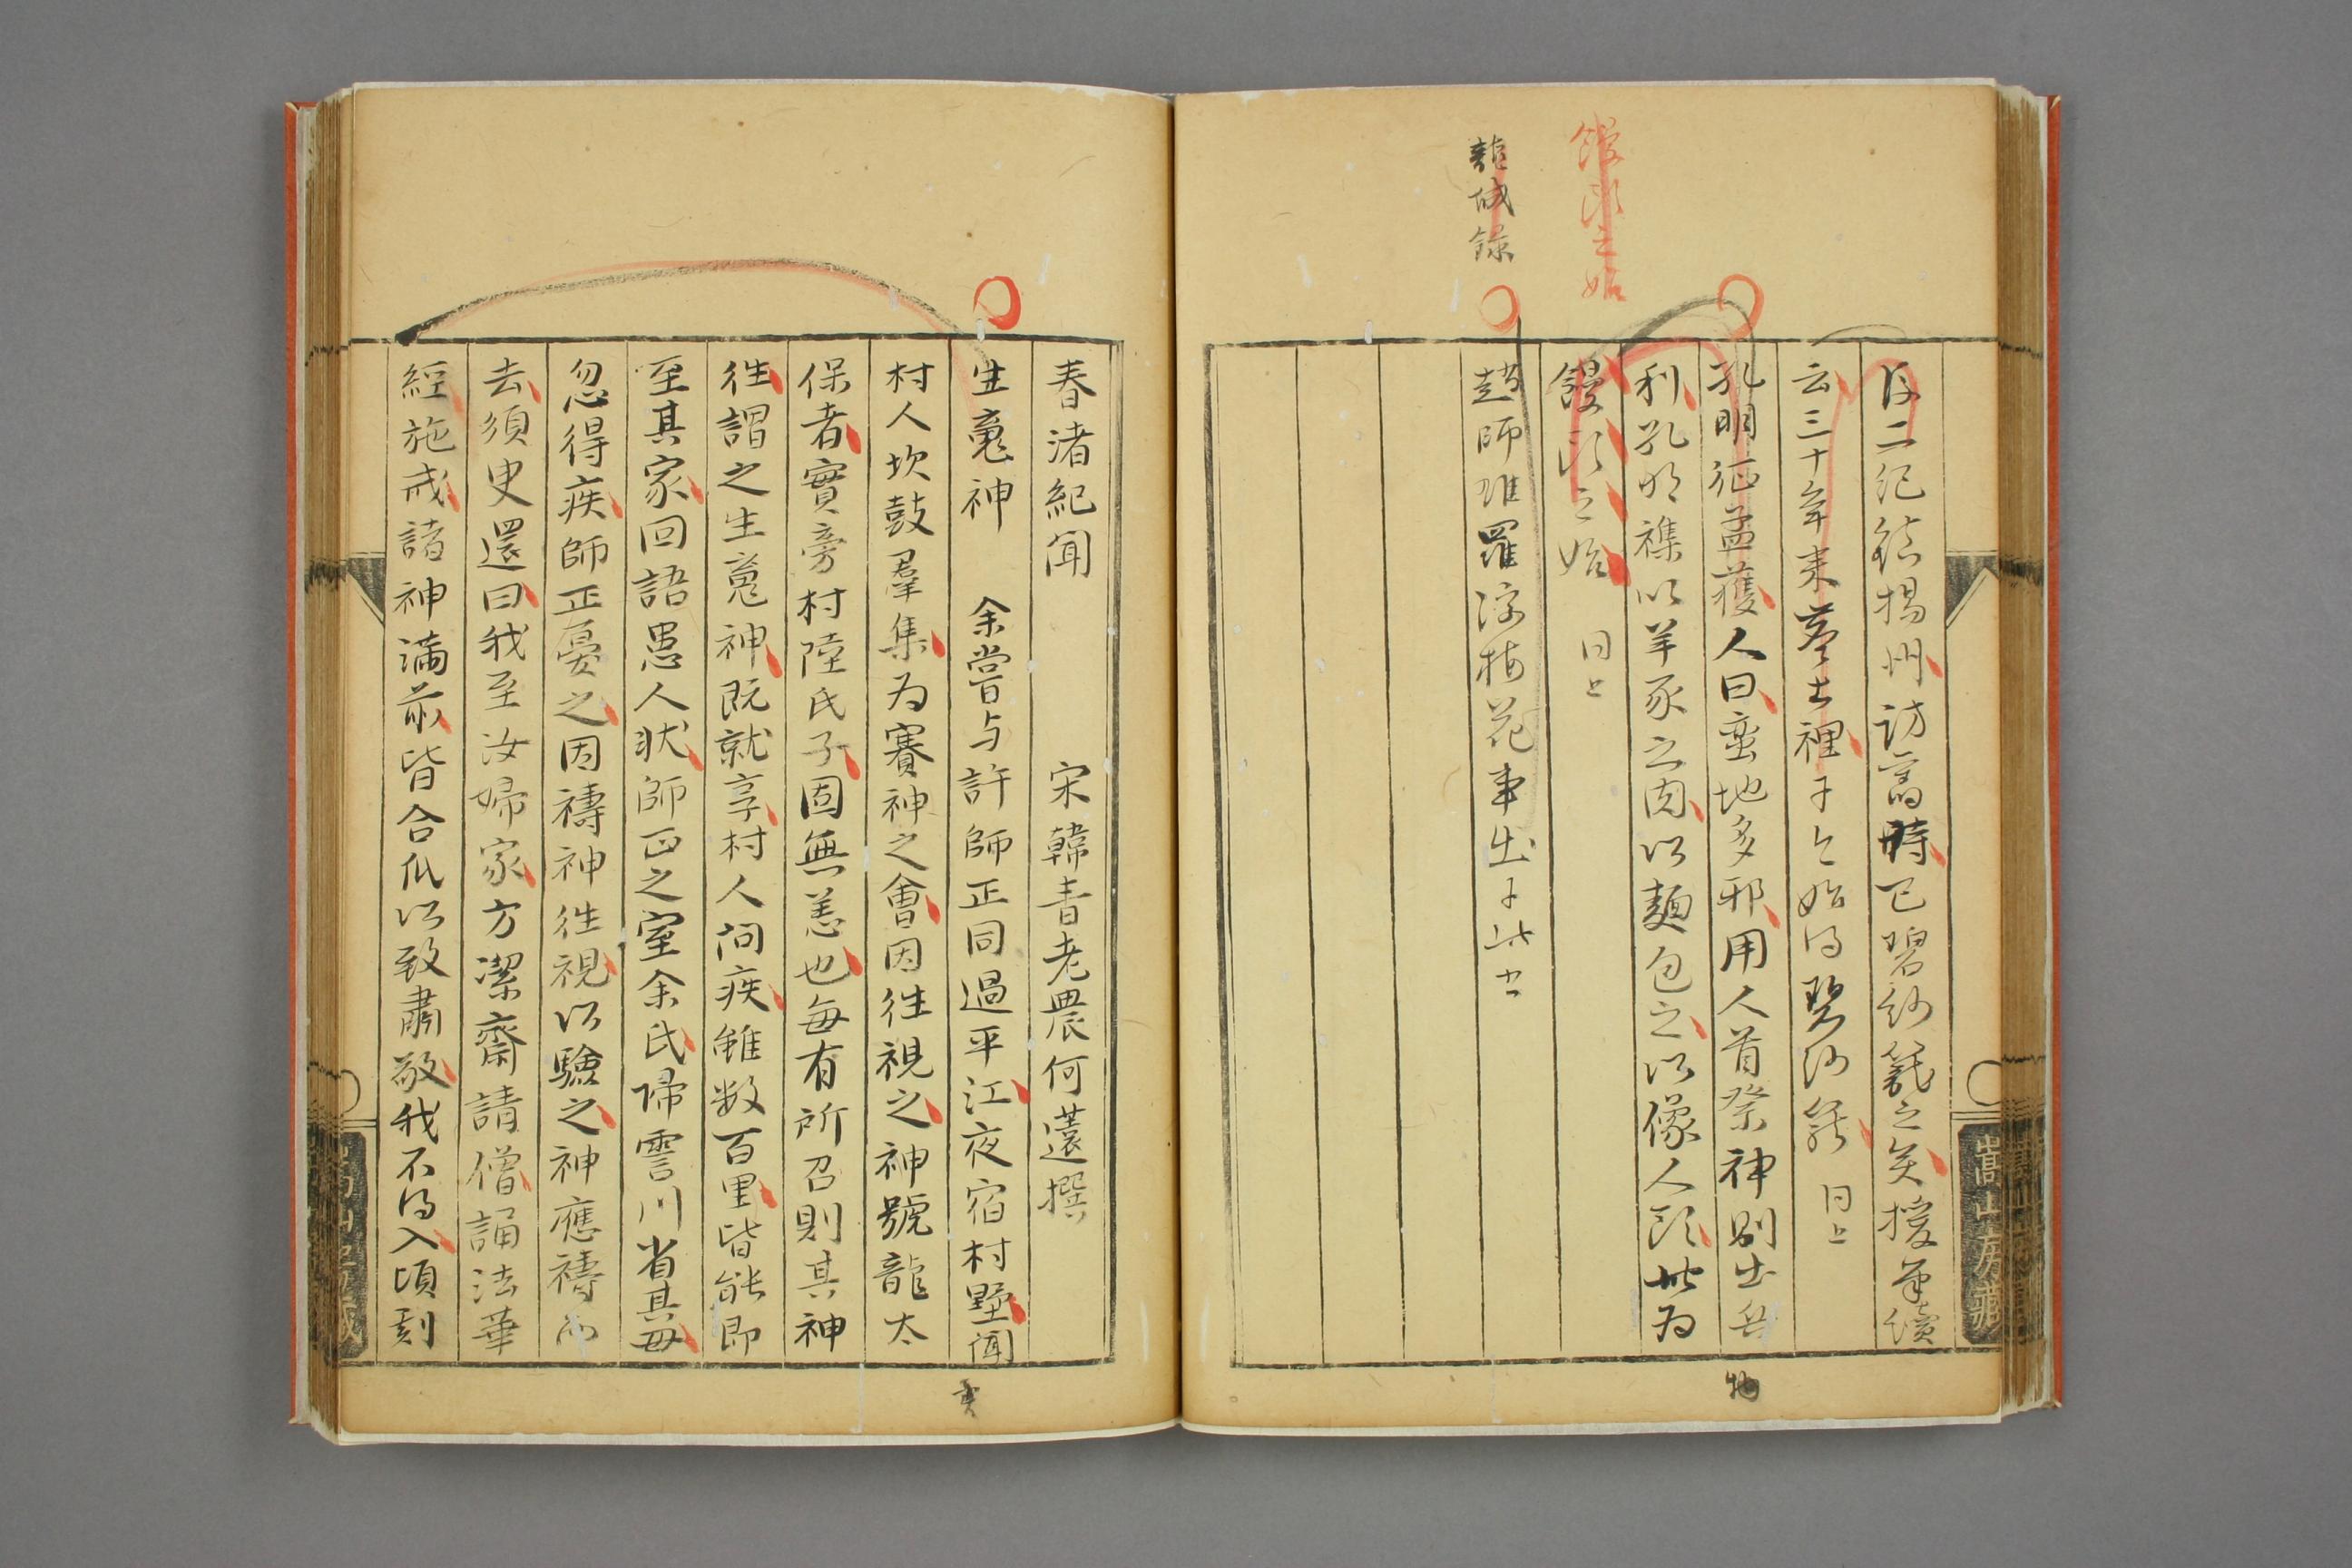 後二紀鎮揚州訪舊時已碧紗籠之矣援筆續
云三十年来塵土裡于今始得碧紗籠 同上
孔明征孟獲人曰蛮地多邪用人首祭神則出兵
利孔明襍以羊豕之肉以麺包之以像人頭此为
饅頭之始 同上
趙師雄羅浮梅花事出于此书
饅頭之始
龍城録
物
嵩山房藏
春渚紀聞 宋韓青老農何薳撰
生魂神 余嘗与許師正同過平江夜宿村墅聞
村人坎鼓羣集为賽神之會因往視之神號龍太
保者實旁村陸氏子固無恙也每有所召則其神
往謂之生魂神既就享村人问疾雖数百里皆能即
至其家回語患人状師正之室余氏帰霅川省其母
忽得疾師正憂之因禱神往視以驗之神應禱而
去須臾還曰我至汝婦家方潔齋請僧誦法華
經施戒諸神满前皆合爪以致肅敬我不得入頃刻